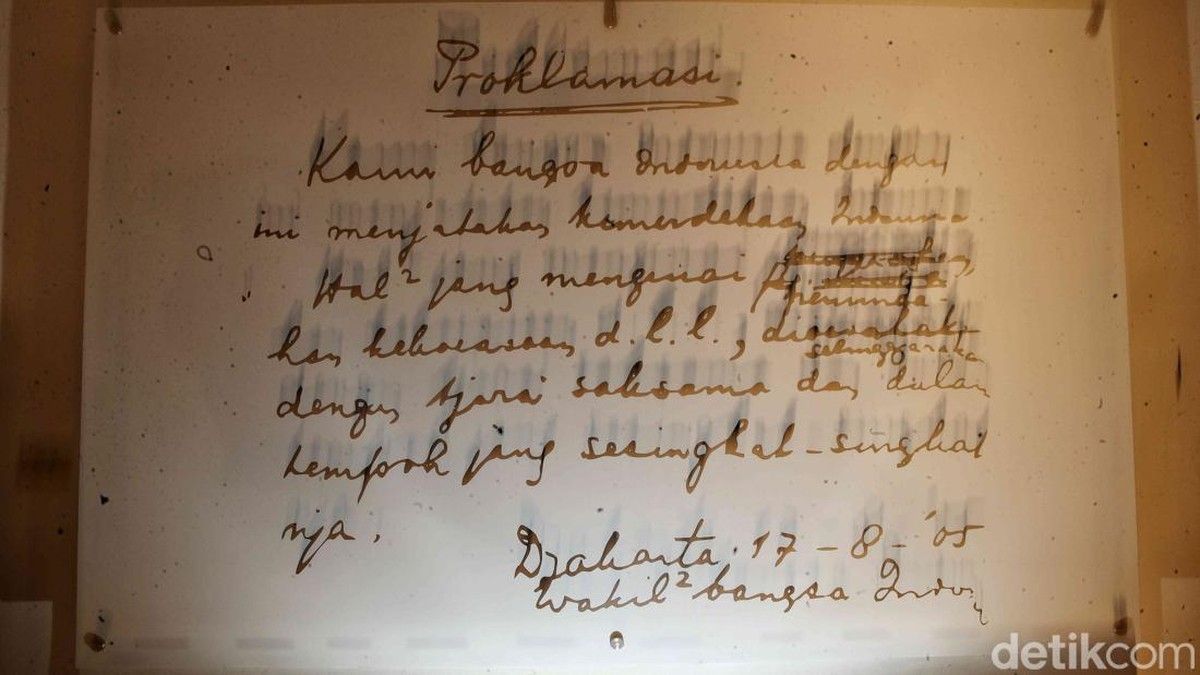 Proklamasi.
Kami bangsa Indonesia dengan
ini menjatakan kemerdekaan Indonesia
Hal² jang mengenai
peminda-
han kekoeasaan d.l.l.,
selenggarakan
dengan tjara saksama dan dalam
tempoh jang sesingkat-singkat
nja.
Djakarta, 17-8-'05
Wakil² bangsa Indon
detikcom